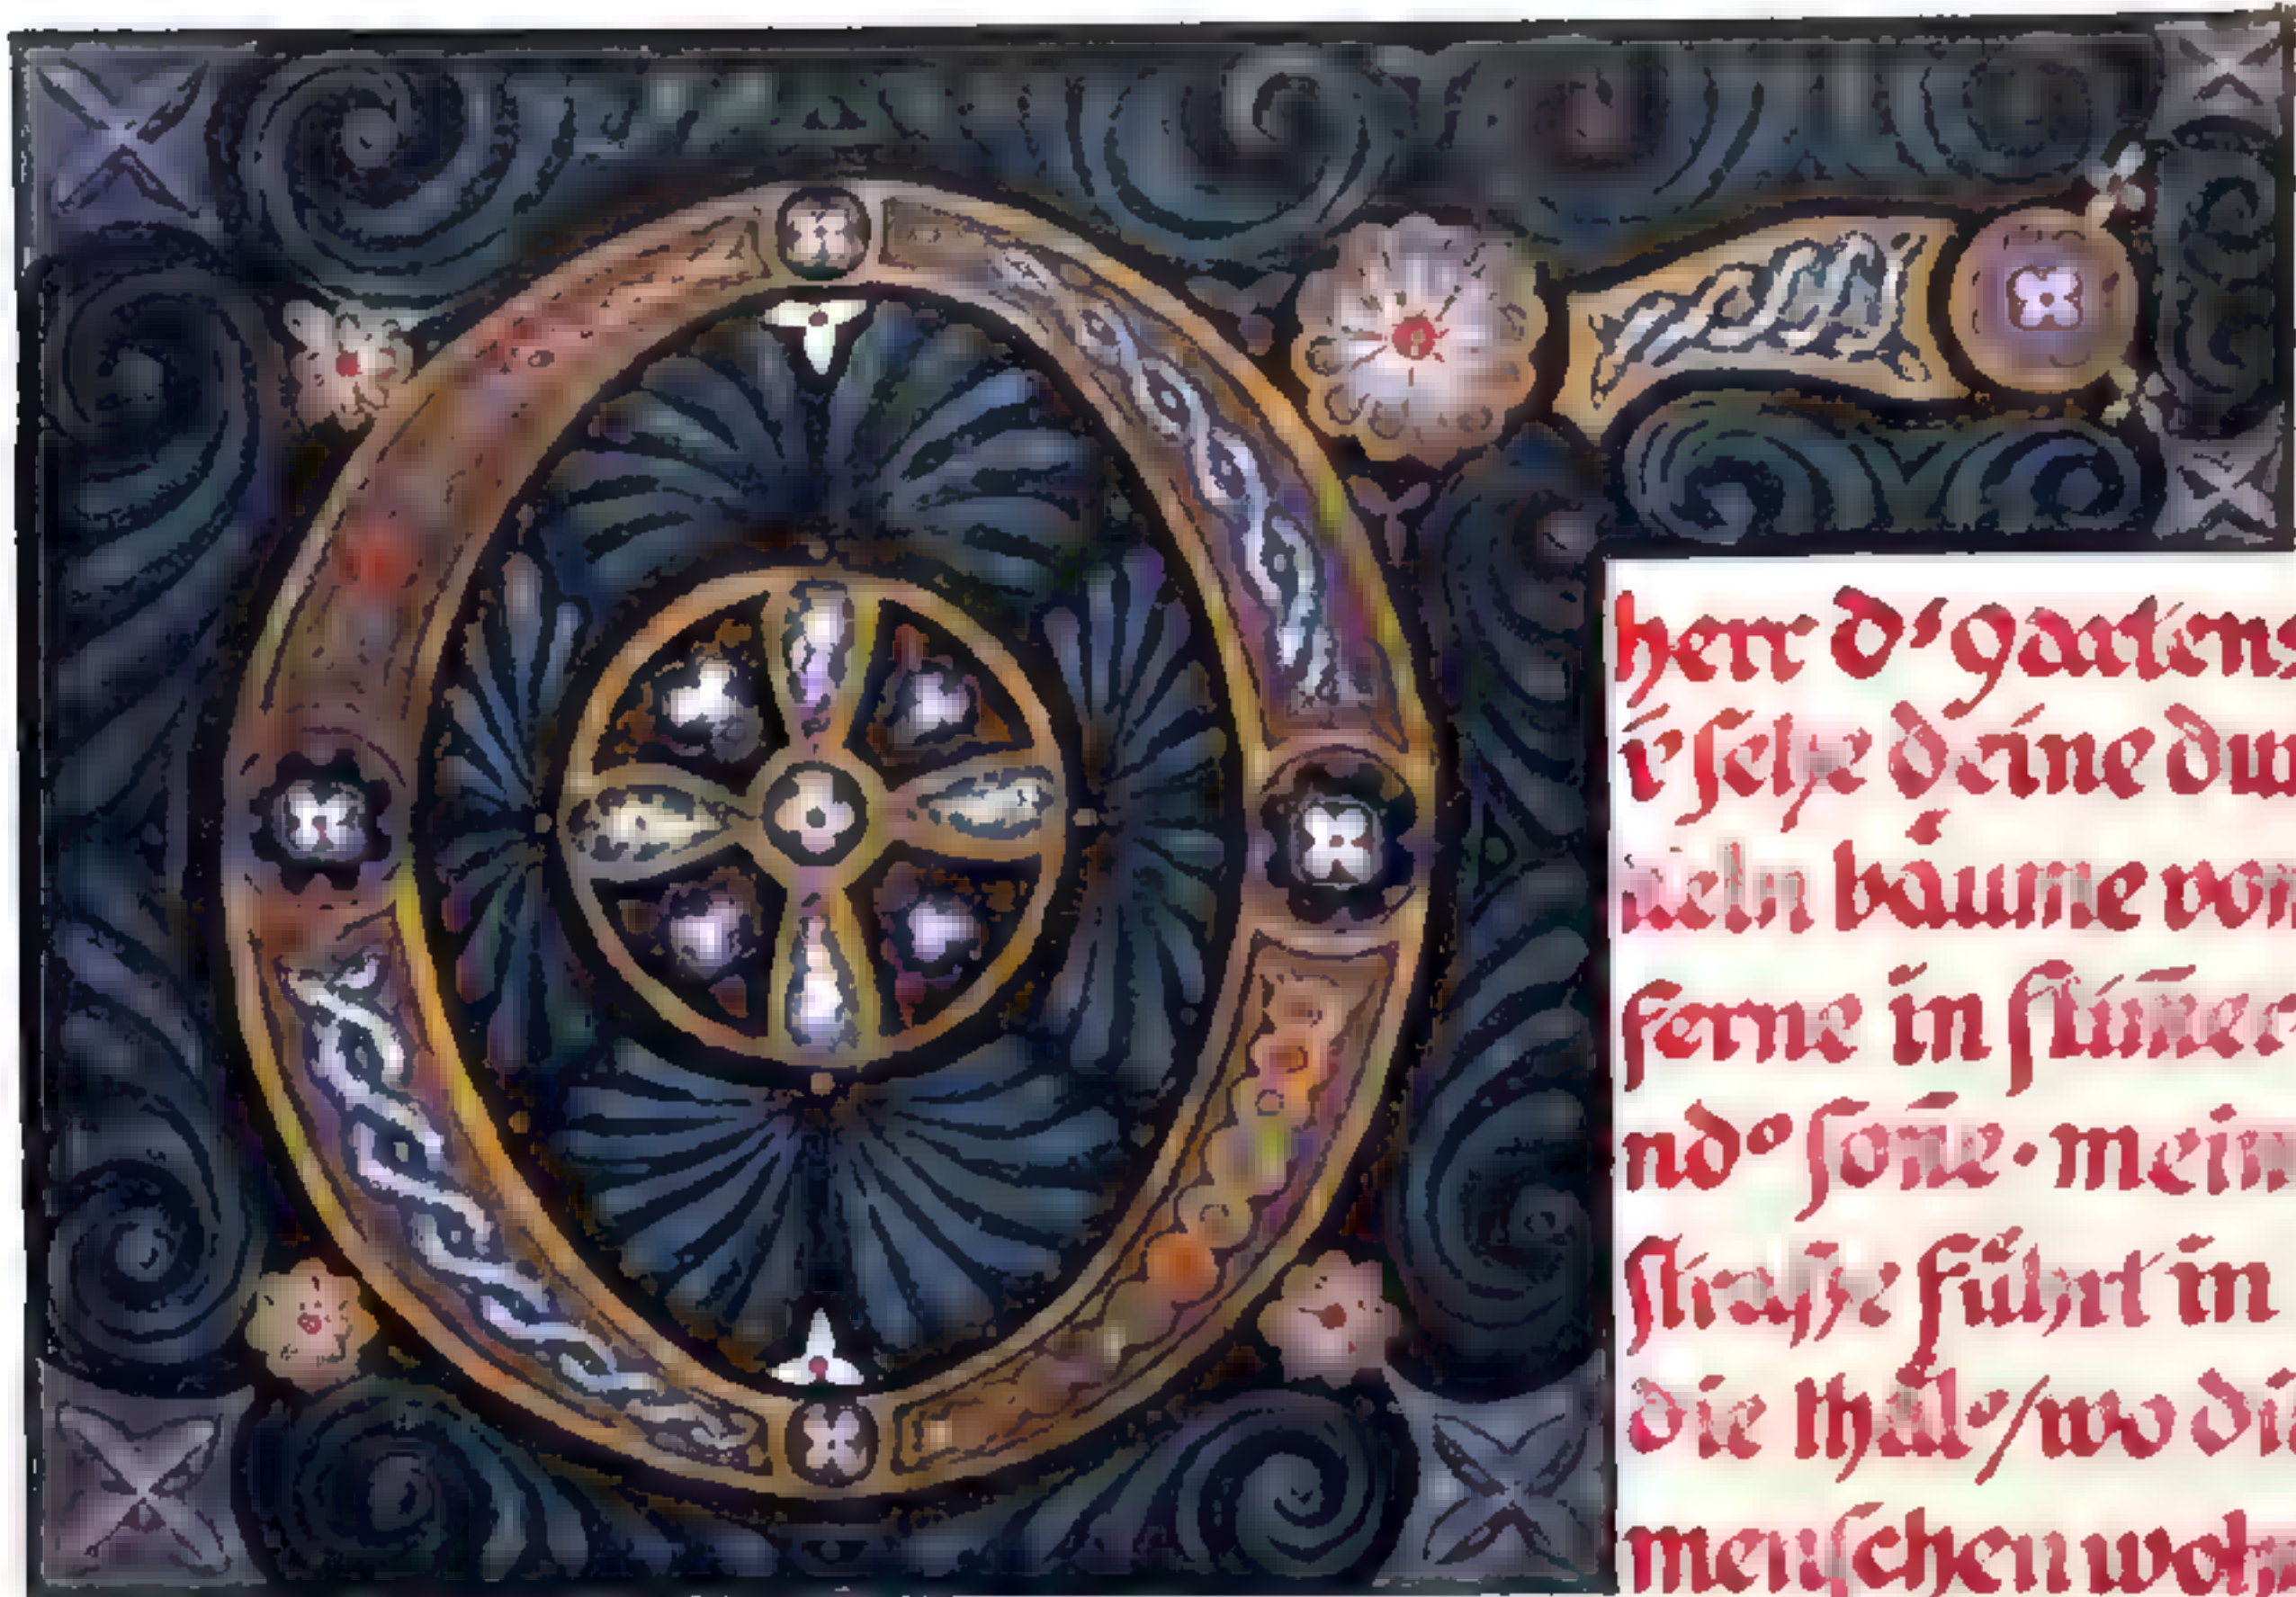 O herr d' gartens
i sehe deine du
keln bäume von
ferne in flim̄er
nd° son̄e· mein
straße führt in
die thäl°/wo di
menschen wohn